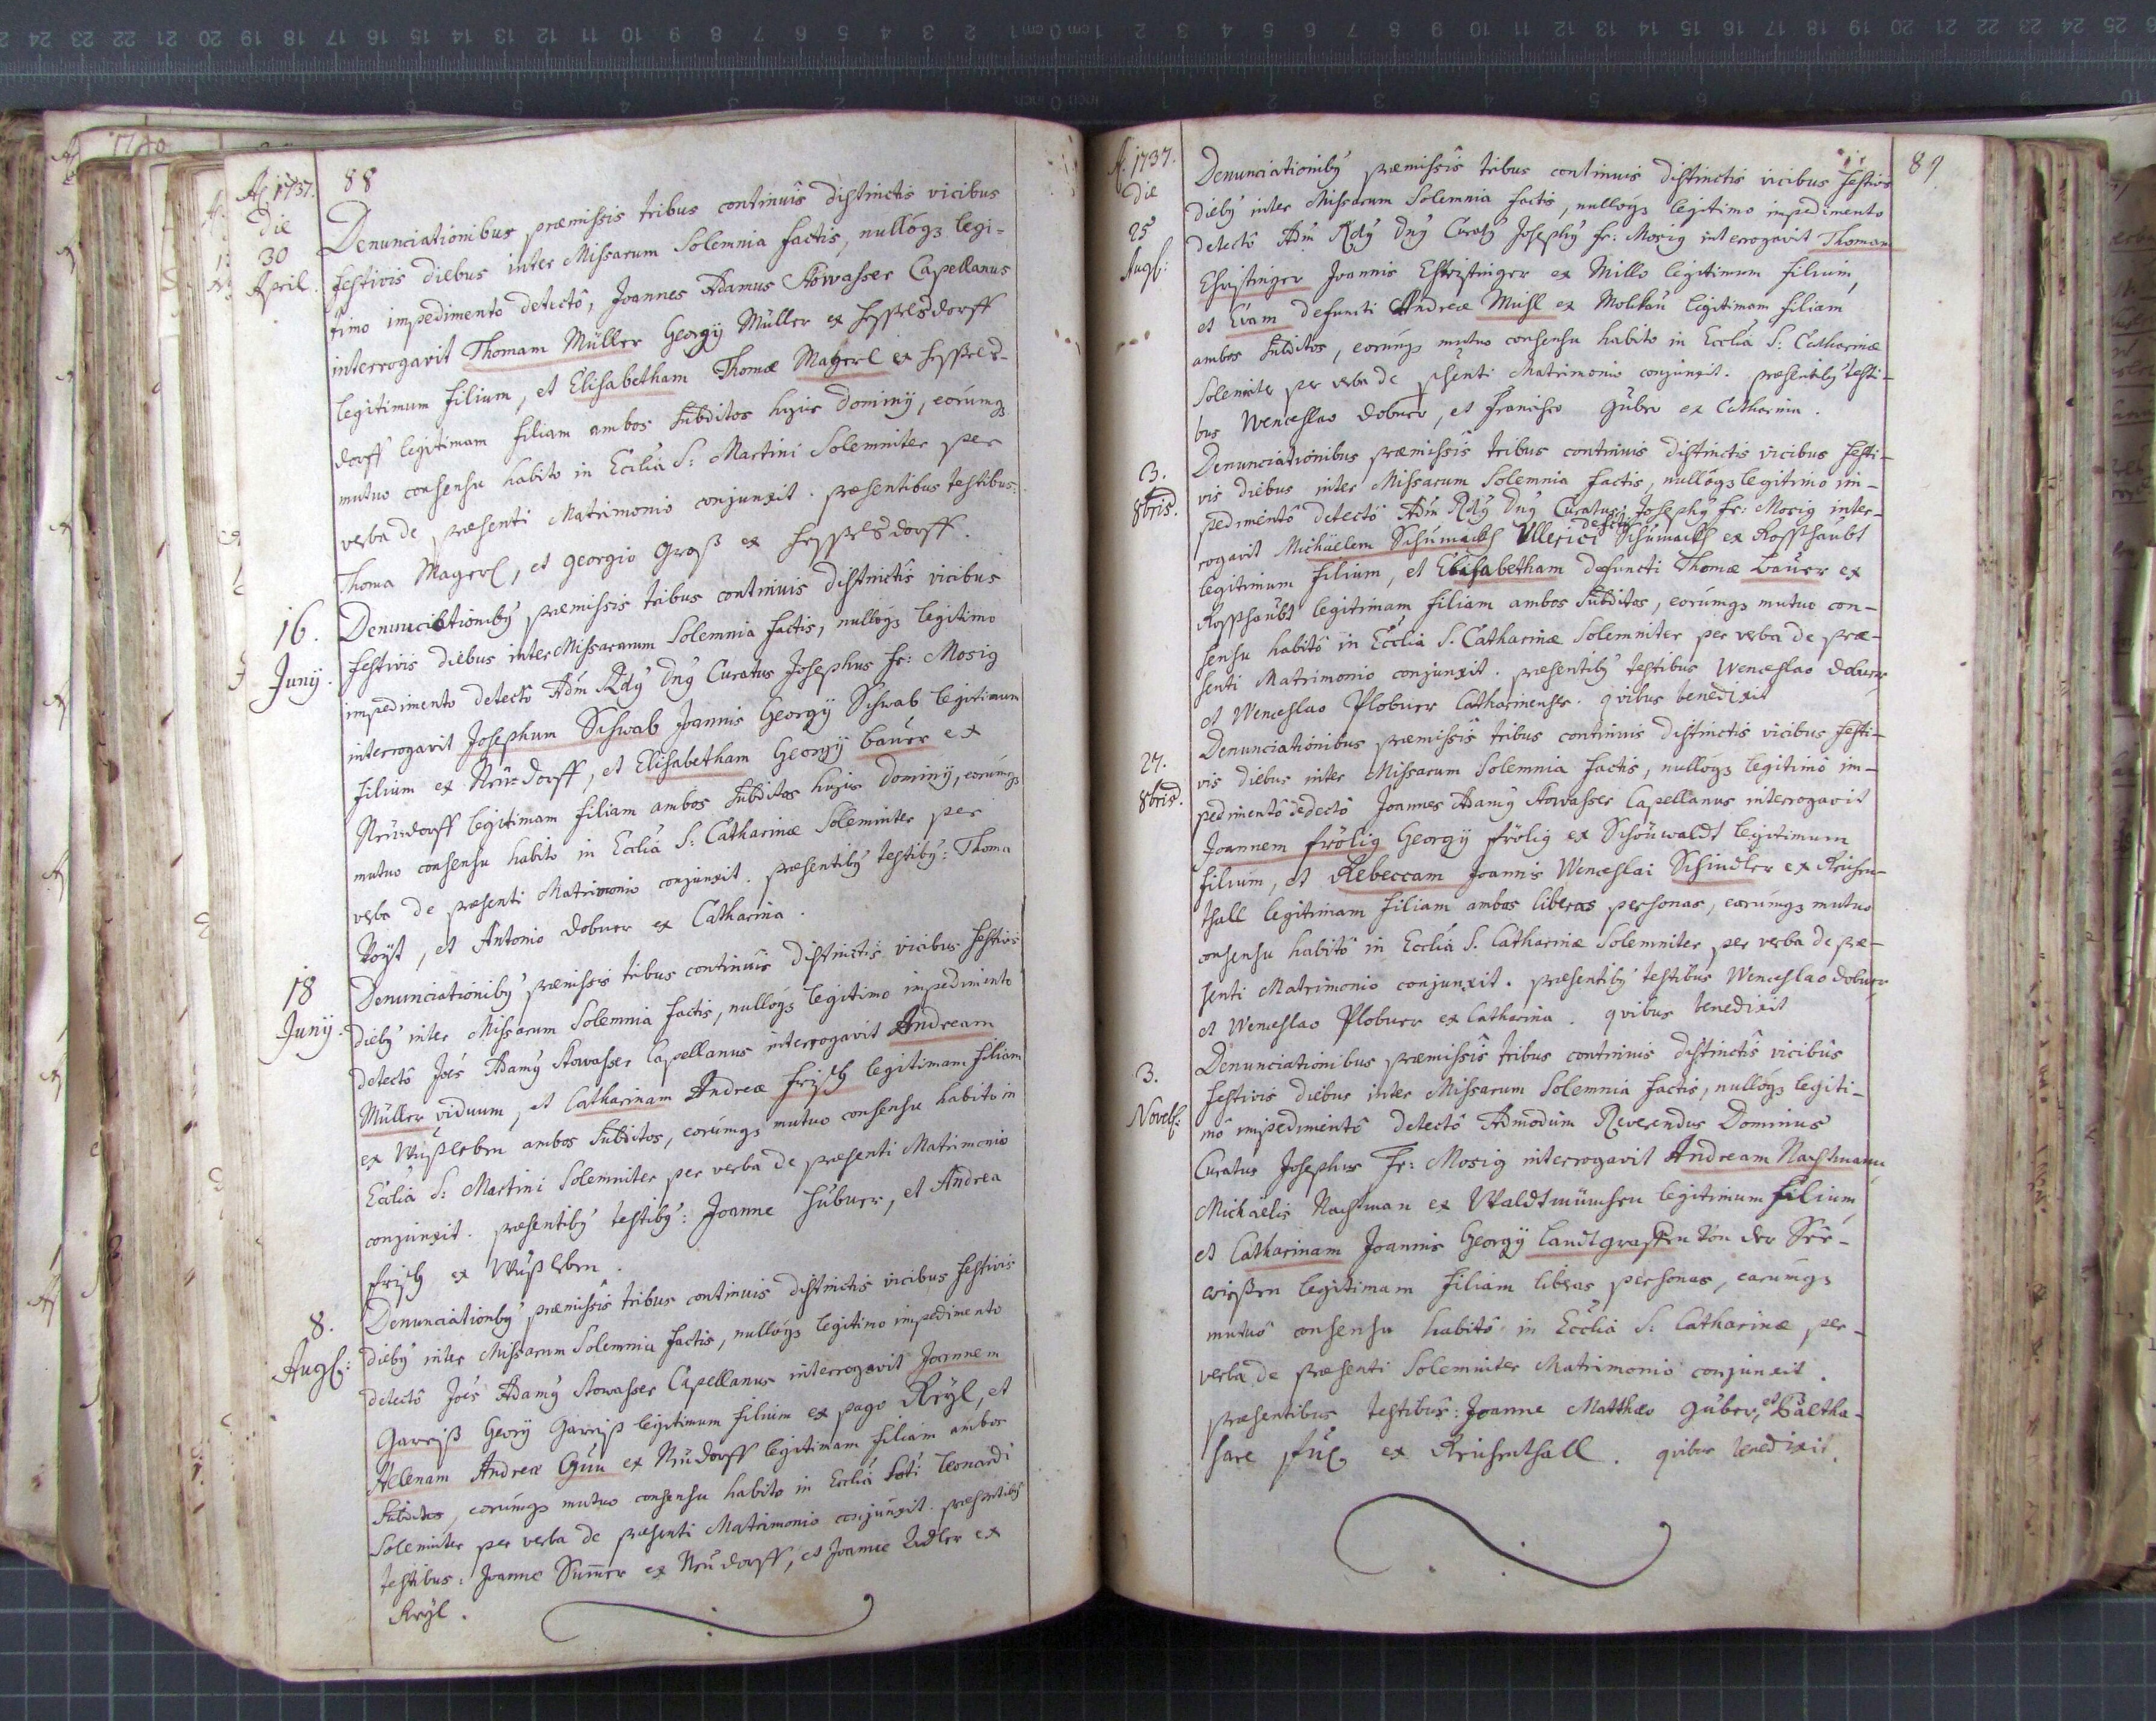 A. 1737.
88
Die
30
April.
Denunciationibus præmissis tribus continuis distinctis vicibus
festivis diebus inter Missarum Solemnia factis, nullóq3 legi-
timo impedimento detectô, Joannes Adamus Stowasser Capellanus
interrogavit Thomam Müller Georgÿ Müller ex
legitimum filium, et Elisabetham Thomæ Magerl ex
dorff legitimam filiam ambos Subditos hujus Dominÿ, eorúmq3
mutuo consensu habito in Ecclia S: Martini Solemniter per
verba de præsenti Matrimonio conjunxit. præsentibus testibus:
Thoma Magerl, et georgio Groß ex
16.
Junÿ.
Denunciationibÿ præmissis tribus continuis distinctis vicibus
festivis diebus inter Missararum Solemnia factis, nullóq3 legitimo
impedimento detectô Adm Rdÿ Dnÿ Curatus Josephus Fr: Mosig
interrogavit Josephum Schwab Joannis Georgÿ Schwab legitimum
filium ex Neudorff, et Elisabetham Georgÿ Bauer ex
Neudorff legitimam filiam ambos Subditos hujus Dominÿ, eorúmq3
mutuo consensu habito in Ecclia S: Catharinæ Solemniter per
verba de præsenti Matrimonio conjunxit. præsentibÿ testibÿ: Thoma
et Antonio Dobner ex Catharina.
18
Junÿ.
Denunciationibÿ præmissis tribus continuis distinctis vicibus festivis
diebÿ inter Missarum Solemnia factis, nullóq3 legitimo impedimento
detectô Joës Adamÿ Stowasser Capellanus interrogavit Andream
Müller viduum, et Catharinam Andreæ Frisch legitimam filiam
ex Wusleben ambos Subditos, eorúmq3 mutuo consensu habito in
Ecclia S: Martini Solemniter per verba de præsenti Matrimonio
conjunxit. præsentibÿ testibÿ: Joanne Hübner, et Andrea
Frisch ex Wusleben.
8.
Aug:
Denunciationibÿ præmissis tribus continuis distinctis vicibus festivis
diebÿ inter Missarum Solemnia factis, nullóq3 legitimo impedimento
detectô Joës Adamÿ Stowasser Capellanus interrogavit Joannem
Garreiß Georÿ Garreiß legitimum filium ex pago Reÿl, et
Helenam Andreæ ex Neudorff legitimam filiam ambos
Subditos, eorúmq3 mutuo consensu habito in Ecclia Scti Leonardi
Solemniter per verba de præsenti Matrimonio conjunxit. præsentibÿ
testibus: Joanne Sumer ex Neudorff, et Joanne Adler ex
Reÿl.
A. 1737.
89
Die
25
Aug:
Denunciationibÿ præmissis tribus continuis distinctis vicibus festivis
diebÿ inter Missarum Solemnia factis, nullóq3 legitimo impedimento
detectô Adm Rdÿ Dnÿ Curatÿ Josephÿ Fr: Mosig interrogavit Thomam
Joannis ex Millo legitimum filium,
et Evam defuncti Andreæ ex legitimam filiam
ambos Subditos, eorúmq3 mutuo consensu habito in Ecclia S: Catharinæ
Solemniter per verba de præsenti Matrimonio conjunxit. præsentibÿ testi-
bus Wenceslao Dobner, et Francisco Guber ex Catharina.
3.
8bris.
Denunciationibus præmissis tribus continuis distinctis vicibus festi-
vis diebus inter Missarum Solemnia factis, nullóq3 legitimo im-
pedimentô detectô Adm Rdÿ Dnÿ Curatus Josephÿ Fr: Mosig inter-
rogavit Michaelem Schumach Ullerici defcti Schumach ex Roßhaubt
legitimum filium, et Elisabetham defuncti Thomæ Bauer ex
Roßhaubt legitimam filiam ambos Subditos, eorúmq3 mutuo con-
sensu habitô in Ecclia S. Catharinæ Solemniter per verba de præ-
senti Matrimonio conjunxit. præsentibÿ testibus Wenceslao Dobner,
et Wenceslao Plobner Catharinenses. qvibus benedixit
27.
8bris.
Denunciationibus præmissis tribus continuis distinctis vicibus festi-
vis diebus inter Missarum Solemnia factis, nullóq3 legitimô im-
pedimentô dedectô Joannes Adamÿ Stowasser Capellanus interrogavit
Joannem Frölig Georgÿ Frölig ex Schönwaldt legitimum
filium, et Rebeccam Joannis Wenceslai Schindler ex Reichen-
thall legitimam filiam ambas liberas personas, earúmq3 mutuo
consensu habitô in Ecclia S. Catharinæ Solemniter per verba de præ-
senti Matrimonio conjunxit. præsentibÿ testibus Wenceslao Dobner
et Wenceslao Plobner ex Catharina. qvibus benedixit
3.
Denunciationibus præmissis tribus continuis distinctis vicibus
festivis diebus inter Missarum Solemnia factis, nullóq3 legiti-
mô impedimentô detectô Admodùm Reverendus Dominus
Curatus Josephus Fr: Mosig interrogavit Andream Nachtmann,
Michaelis Nachtman ex Waldtmünchen legitimum filium,
et Catharinam Joannis Georgÿ Landtgraffen von der See-
wießen legitimam filiam liberas personas, earúmq3
mutuô consensu habitô in Ecclia S: Catharinæ per-
verba de præsenti Solemniter Matrimonio conjunxit.
præsentibus testibus: Joanne Matthæo Guber, et Baltha-
sare ex Reichenthall. qvibus benedixit.